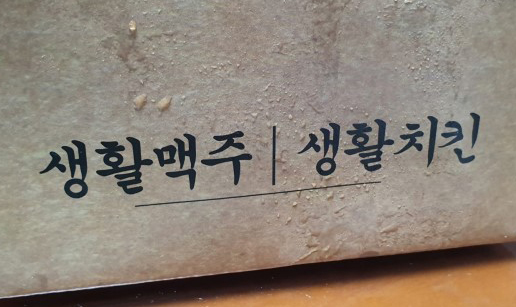 생활맥주 | 생활치킨